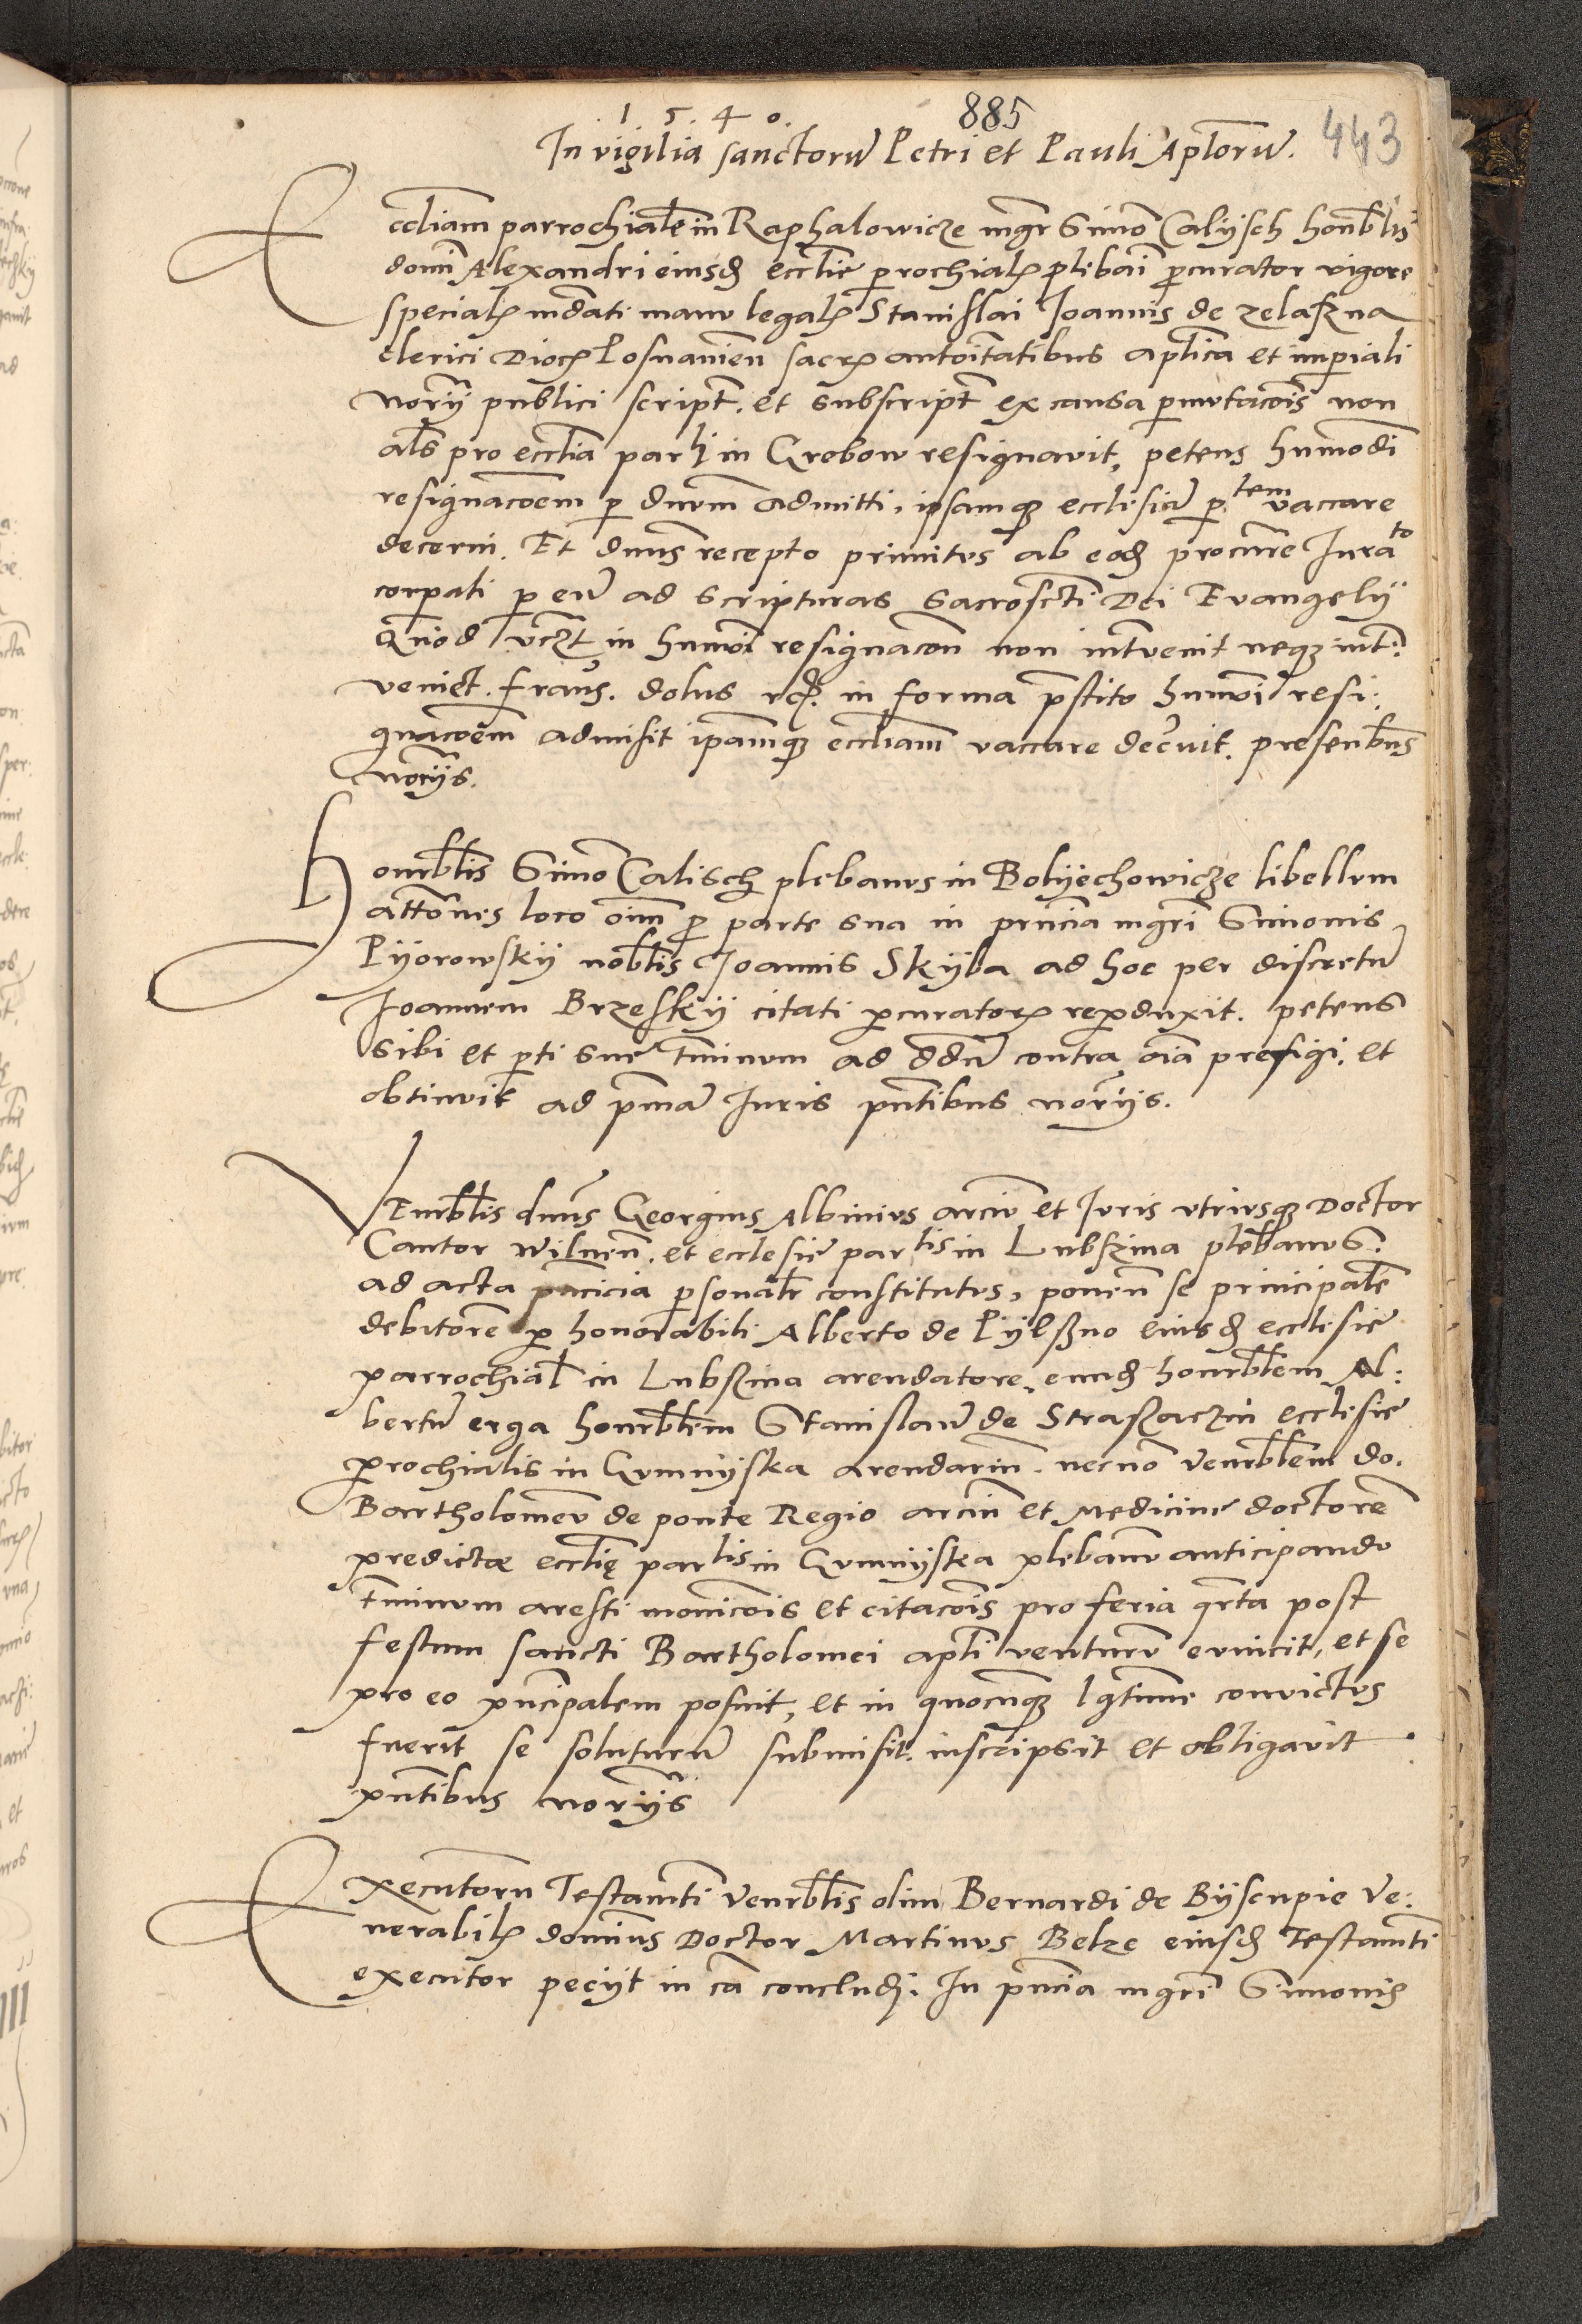 1 5 4 0. 885 443
In vigilia sanctorū Petri et Pauli Aplorū.
Eccliam parrochialē in Raphalowicze mgr Simō Calijsch honrblis
domi Alexandri eiusd ecclie prochial plibani pcurator vigore
special mdati manu legal Stanislai Joannis de zelaszna
clerici Dioc Posnanien sacr autoitatibus aplica et impiali
norij publici script. et subscript ex causa pmutacois non
als pro ecclia parli in Grobow resignavit, petens hmmodi
resignacoem p dnum admitti, ipsamq ecclesiā p tem vaccare
decerni. Et dnus recepto primitus ab eod procure Jurato
corpati p eū ad scripturas sacroscti Dei Evangelij
Quod vczt in hmmoi resignacon non intvenit neq int:
veniet. fraus. dolus rcp. in forma pstito hmmoi resi:
gnacoem admisit ipamq eccliam vaccare decvit. presenbus
norijs.
Honrblis Simō Calisch plebanus in Bolijechowicze libellum
attoes loco oim p parte sua in pnncia mgri Simonis
Pijorowskij noblis Joannis Skijba ad hoc per discretū
Joannem Brzeskij citati pcurator repduxit. petens
sibi et pti sue tminum ad ddū contra oia prefigi. et
obtinuit ad pmā Juris pntibus norijs.
VEnrblis dnus Georgius Albinius arciū et Juris vtriusq Doctor
Cantor Wilnen. et ecclesie parlis in Lubszina plebanus.
ad acta pncicia psonalr constitutus, ponen se principalē
debitorē p honorabili Alberto de Pijlszno eiusd ecclesie
parrochial in Lubszina arendatore, eund honrblem Al:
bertū erga honrblem Stanislaū de Straszaczin ecclesie
prochialis in Gumnijska arendariū. necnō venrblem do.
Bartholomeū de ponte Regio arciū et Medicine doctorē
predictae ecclię parlis in Gumnijska plebanū anticipando
tminum aresti monicois et citacois pro feria qrta post
festum sancti Bartholomei apli venturū evincit, et se
pro eo pncipalem posuit, et in quocunq lgtime convictus
fuerit se soluturū submisit. inscripsit et obligavit
pntibus norijs
Executorū Testamti venrblis olim Bernardi de Bijscupie Ve:
nerabil dominus Doctor Martinus Belze eiusd Testamti
executor pecijt in cā concludi. In pnncia mgri Simonis